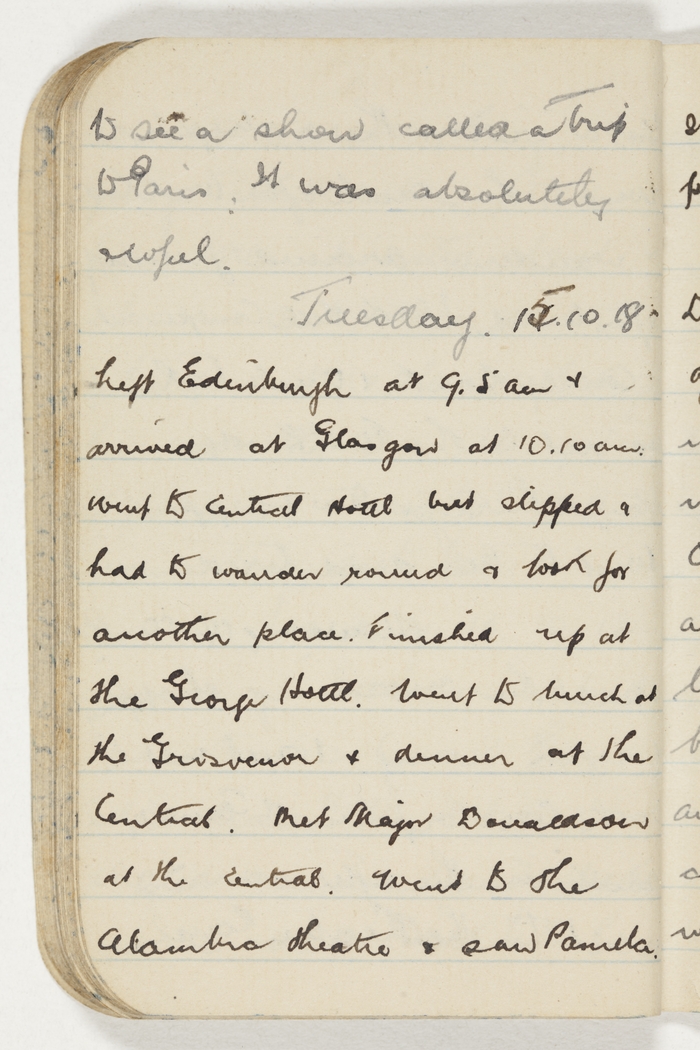 to see a show called a Trip
to Paris. It was absolutely
awful.
Tuesday. 15.10.18.
Left Edinburgh at 9.5 am &
arrived at Glasgow at 10.10 am.
Went to Central Hotel but slipped &
had to wander round & look for
another place. Finished up at
the George Hotel. Went to lunch at
the Grosvenor & dinner at the
Central. Met Major Donaldson
at the Central. Went to the
Alambra theatre & saw Pamela.